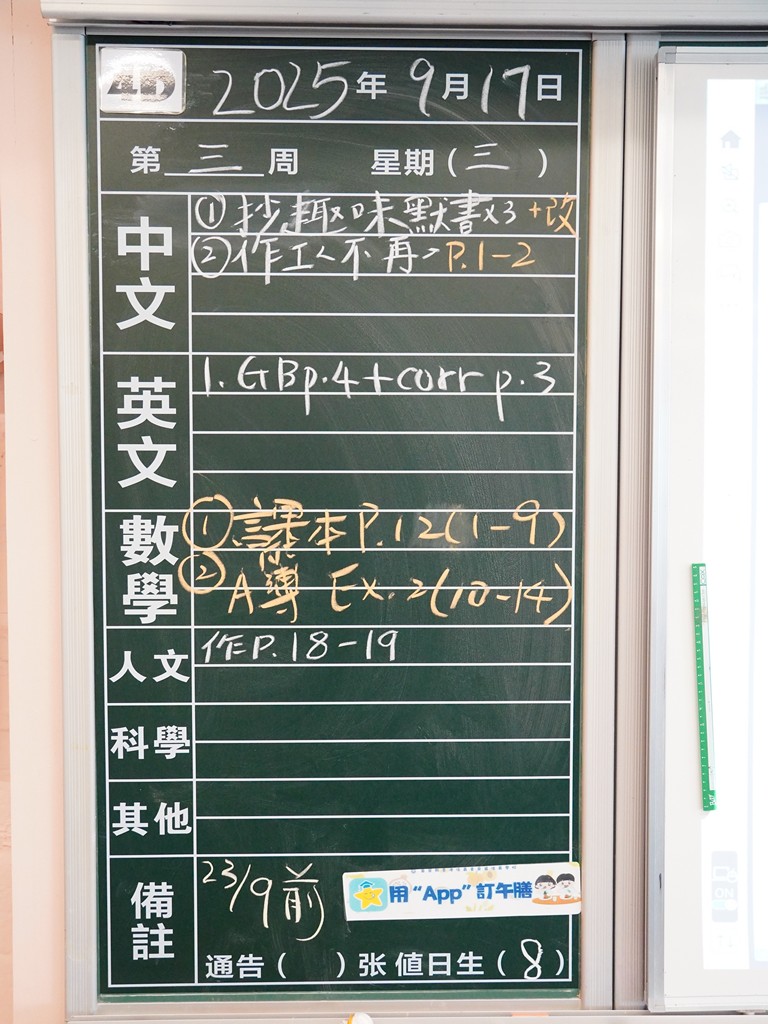 4D
2025年9月17日
第三周 星期(三)
中文
①抄趣味默書x3+改
②作工<不再>P.1-2
英文
1. GBp.4+corr p.3
數學
①課本P.12(1-9)
②A簿 Ex.2(10-14)
人文
作P.18-19
科學
其他
備註
23/9前
用“App”訂午膳
通告( )张 值日生(8)
ON